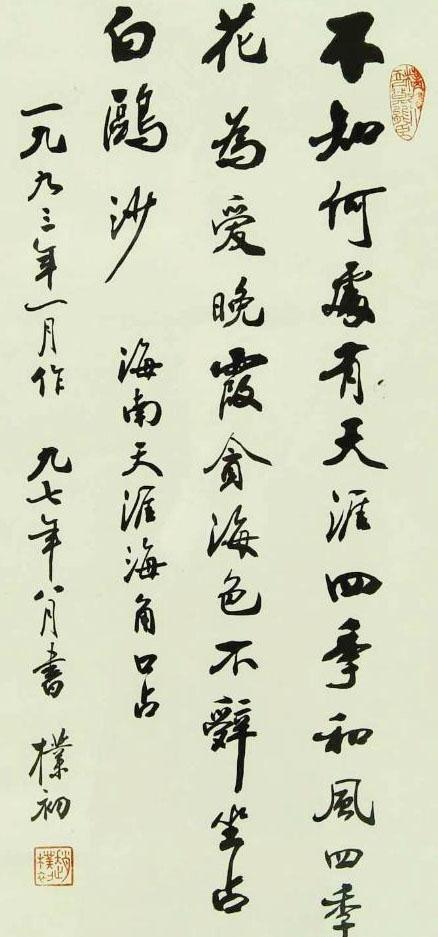 不知何處有天涯四季和風四季
花為愛晚霞貪海色不辭坐占
白鷗沙
海南天涯海角口占
一九九三年一月作 九七年八月書 樸初
趙樸初